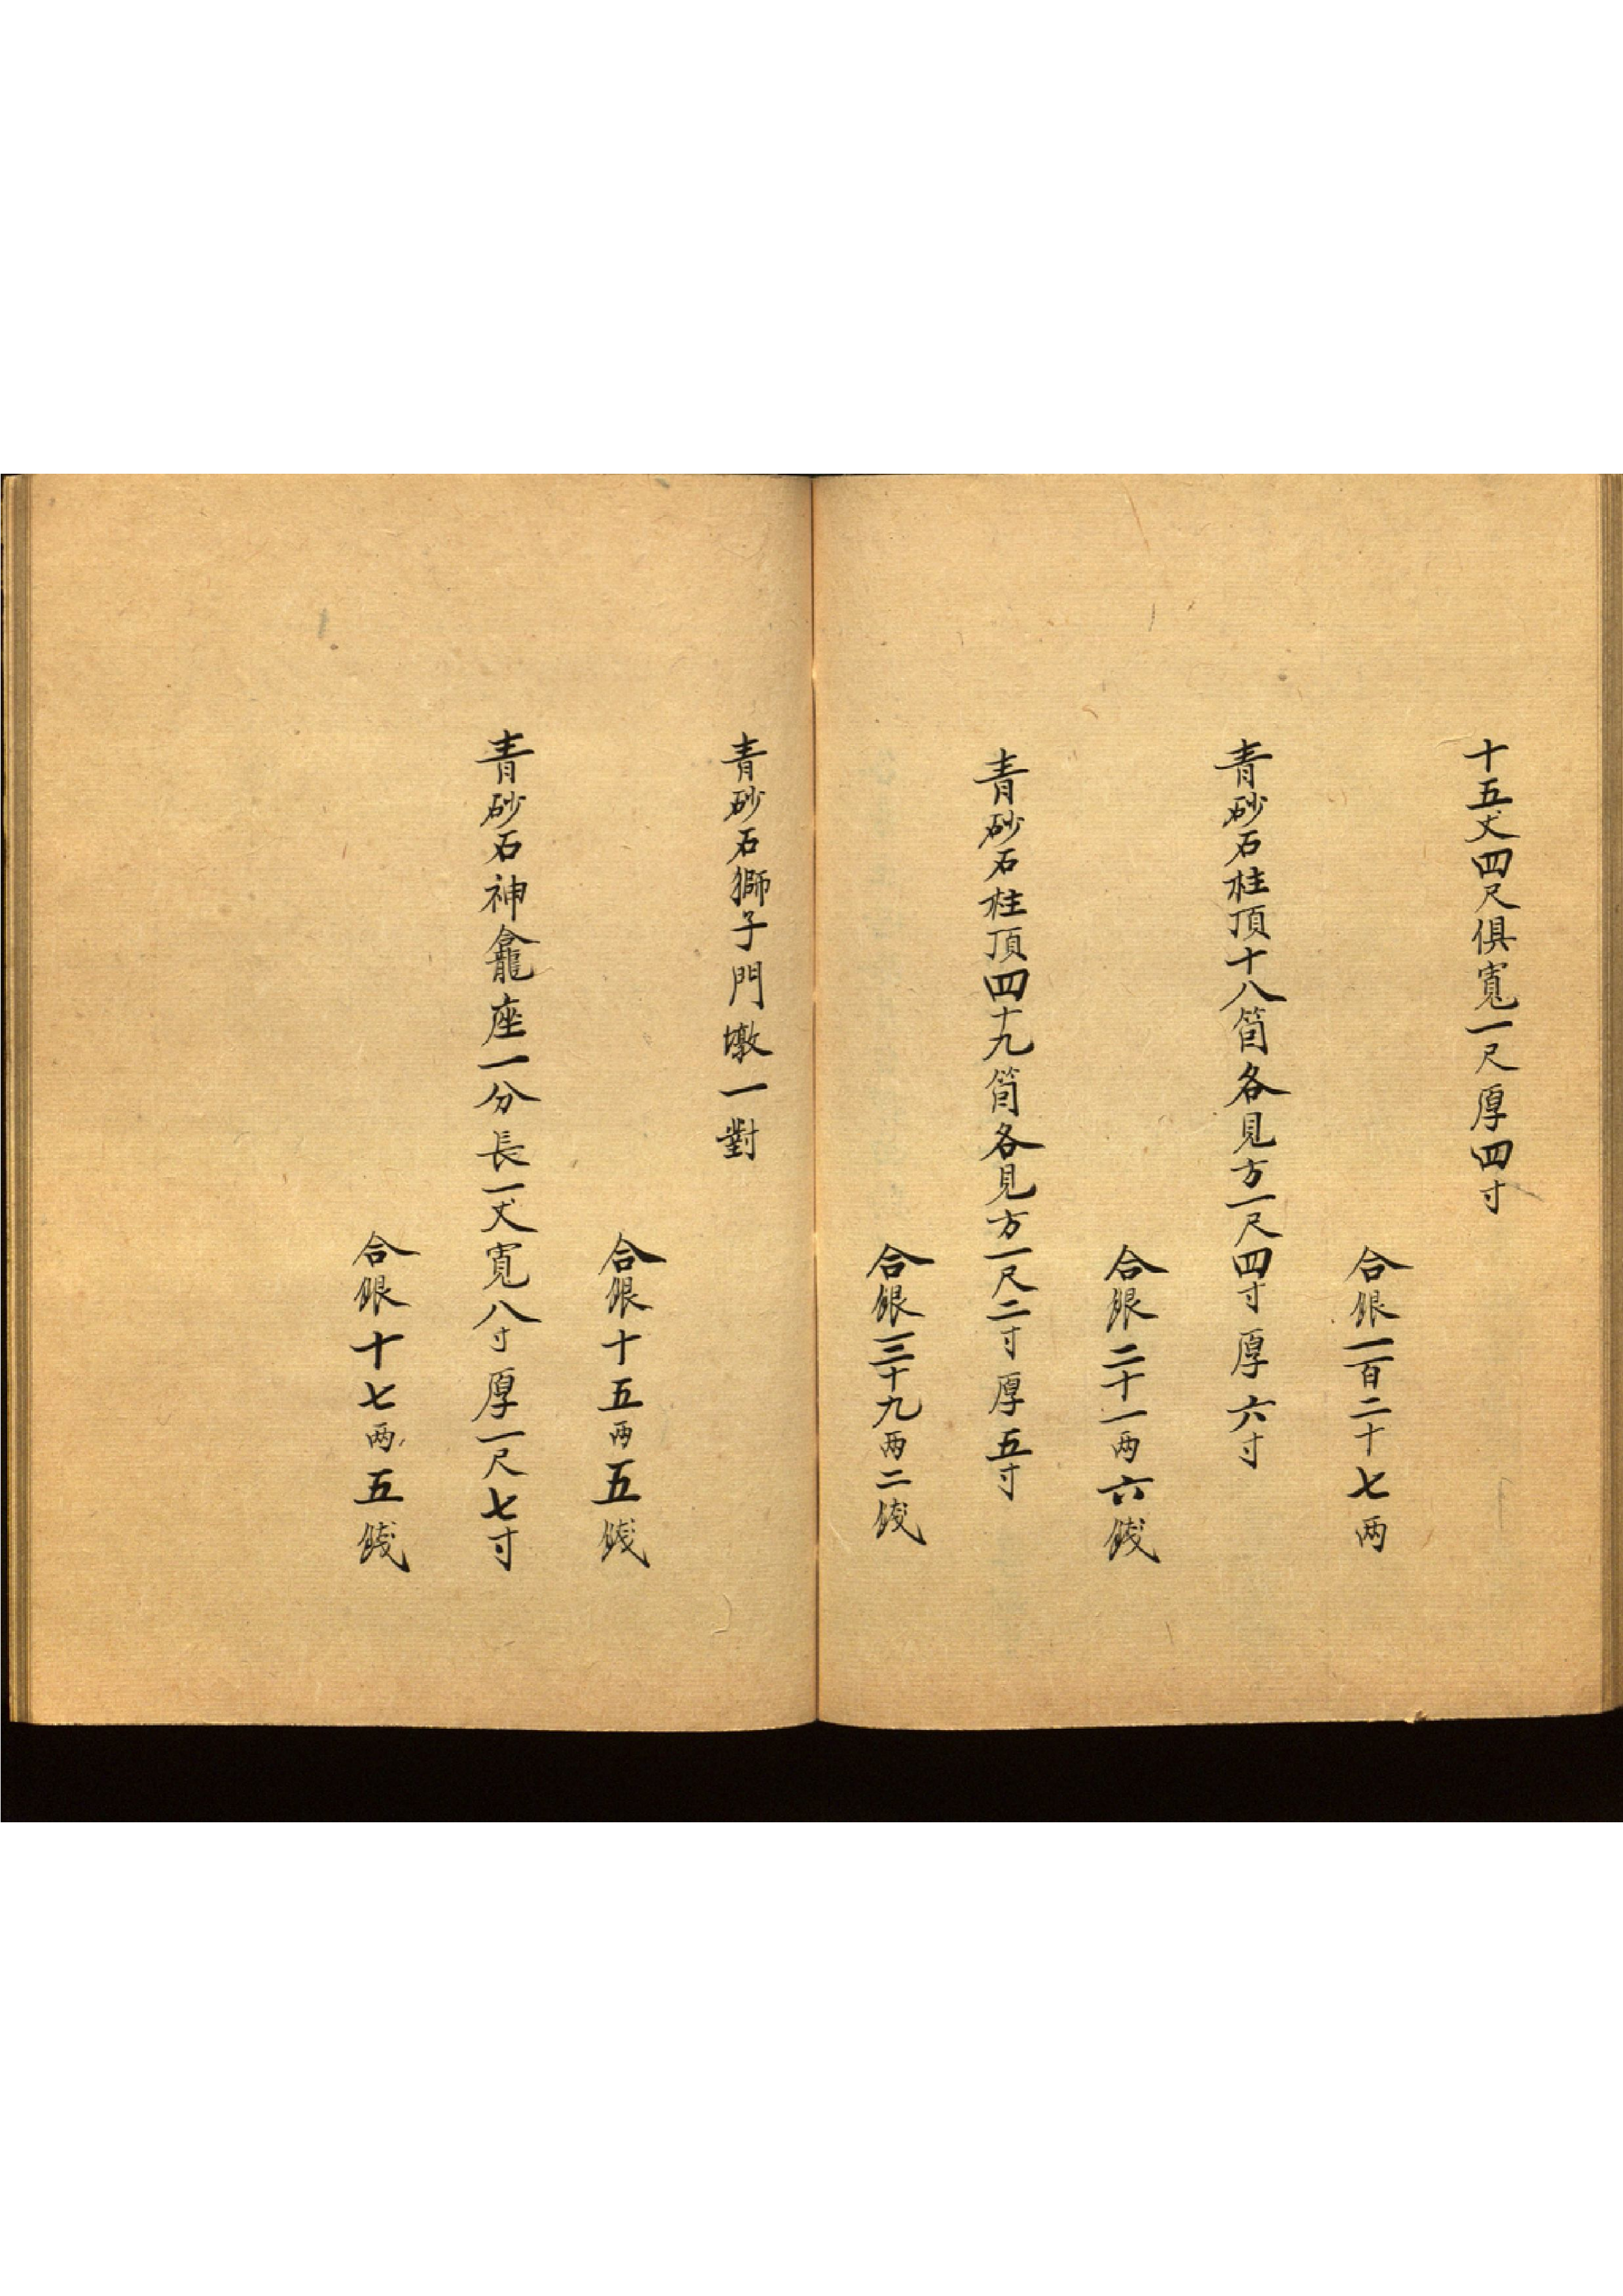 十五丈四尺俱寬一尺厚四寸
合銀一百二十七两
青砂石柱頂十八箇各見方一尺四寸厚六寸
合銀二十一两六錢
青砂石柱頂四十九箇各見方一尺二寸厚五寸
合銀三十九两二錢
青砂石獅子門墩一對
合銀十五两五錢
青砂石神龕座一分長一丈寬八寸厚一尺七寸
合銀十七两五錢